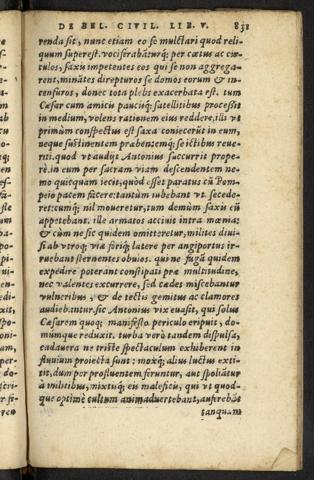 DE BEL. CIVIL. LIB. V. 831
renda sit, nunc etiam eo se mulctari quod reli-
quum superest. vociferabãturq́; per cœtus ac cir-
culos, saxis impetentes eos qui se non aggrega-
rent, minãtes direpturos se domos eorum & in-
censuros, donec tota plebs exacerbata est. tum
Cæsar cum amicis paucisq́; satellitibus processit
in medium, volens rationem eius reddere. illi vt
primùm conspectus est saxa coniecerũt in eum,
neque sustinentem præbentemq́; se ictibus reue-
riti. quod vt audijt Antonius succurrit prope-
rè. in eum per sacram viam descendentem ne-
mo quicquam iecit, quòd esset paratus cũ Pom-
peio pacem facere: tantùm iubebant vt secede-
ret: cumq́; nil moueretur, tum demùm saxis cũ
appetebant. ille armatos acciuit intra mœnia:
& cùm ne sic quidem omitteretur, milites diui-
si ab vtroq; viæ foriq́; latere per angiportus ir-
ruebant sternentes obuios. qui ne fugã quidem
expedire poterant constipati præ multitudine,
nec valentes excurrere, sed cædes miscebantur
vulneribus, & de tectis gemitus ac clamores
audiebantur. sic Antonius vix euasit, qui solus
Cæsarem quoq; manifesto periculo eripuit, do-
mumque reduxit. turba verò tandem dispulsa,
cadauera ne triste spectaculum exhiberent in
fluuium proiecta sunt: moxq́; alius luctus exti-
tit, dum per profluentem feruntur, aut spoliãtur
à militibus, mixtisq́; eis maleficis, qui vt quod-
que optimè cultum animaduertebant, auferebãt
tanquam